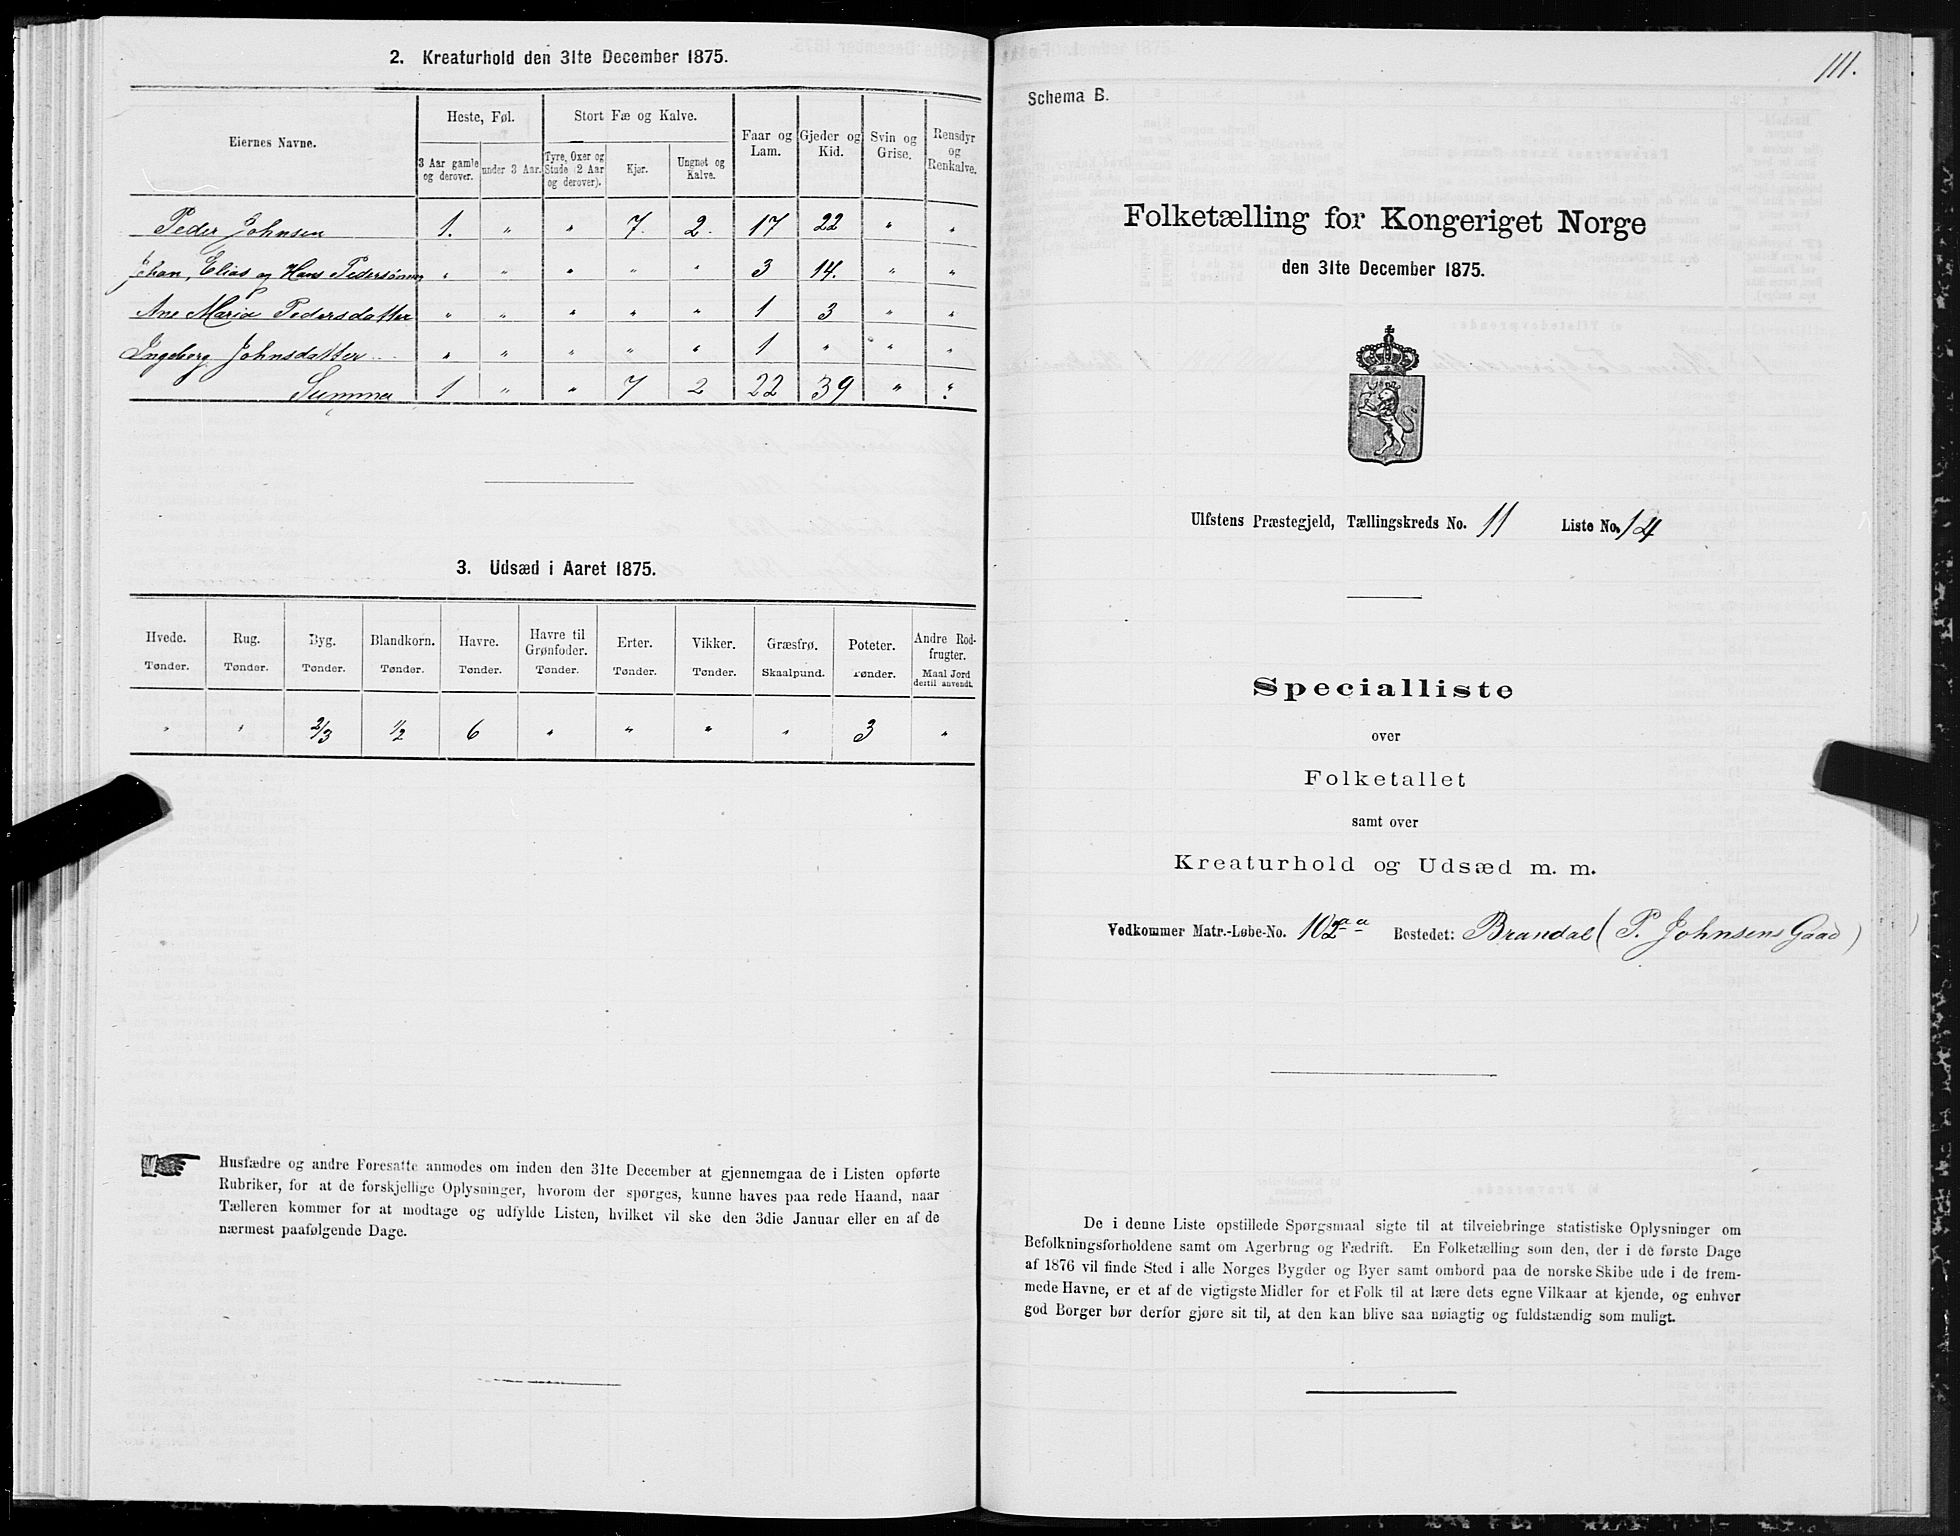 2. Kreaturhold den 31te December 1875.
Eiernes Navne.
Heste, Føl.
Stort Fæ og Kalve.
Faar og Lam.
Gjeder og Kid.
Svin og Grise.
Rensdyr og Renkalve.
3 Aar gamle og derover.
under 3 Aar.
Tyre, Oxer og Stude (2 Aar og derover).
Kjør.
Ungnøt og Kalve.
Peder Johnsen 1. " " 7. 2. 17 22 " "
Johan, Elias og Hans Pedersønner " " " " " 3 14. " "
Ane Maria Pedersdatter " " " " " 1 3 " "
Ingeborg Johnsdatter " " " " " 1 " " "
Summa 1 " " 7 2 22 39 " "
3. Udsæd i Aaret 1875.
Hvede. Rug. Byg. Blandkorn. Havre. Havre til Grønfoder. Erter. Vikker. Græsfrø. Poteter. Andre Rodfrugter.
Tønder. Tønder. Tønder. Tønder. Tønder. Tønder. Tønder. Tønder. Skaalpund. Tønder. Maal Jord dertil anvendt.
" " 2/3 1/2 6 " " " " 3 "
Husfædre og andre Foresatte anmodes om inden den 31te December at gjennemgaa de i Listen opførte
Rubriker, for at de forskjellige Oplysninger, hvorom der spørges, kunne haves paa rede Haand, naar
Tælleren kommer for at modtage og udfylde Listen, hvilket vil ske den 3die Januar eller en af de
nærmest paafølgende Dage.
111.
Schema B.
Folketælling for Kongeriget Norge
den 31te December 1875.
Ulfstens Præstegjeld, Tællingskreds No. 11 Liste No. 14
Specialliste
over
Folketallet
samt over
Kreaturhold og Udsæd m. m.
Vedkommer Matr.-Løbe-No. 102 a a Bostedet: Brandal ( P. Johnsens Gaad )
De i denne Liste opstillede Spørgsmaal sigte til at tilveiebringe statistiske Oplysninger om
Befolkningsforholdene samt om Agerbrug og Fædrift. En Folketælling som den, der i de første Dage
af 1876 vil finde Sted i alle Norges Bygder og Byer samt ombord paa de norske Skibe ude i de frem-
mede Havne, er et af de vigtigste Midler for et Folk til at lære dets egne Vilkaar at kjende, og enhver
god Borger bør derfor gjøre sit til, at den kan blive saa nøiagtig og fuldstændig som muligt.